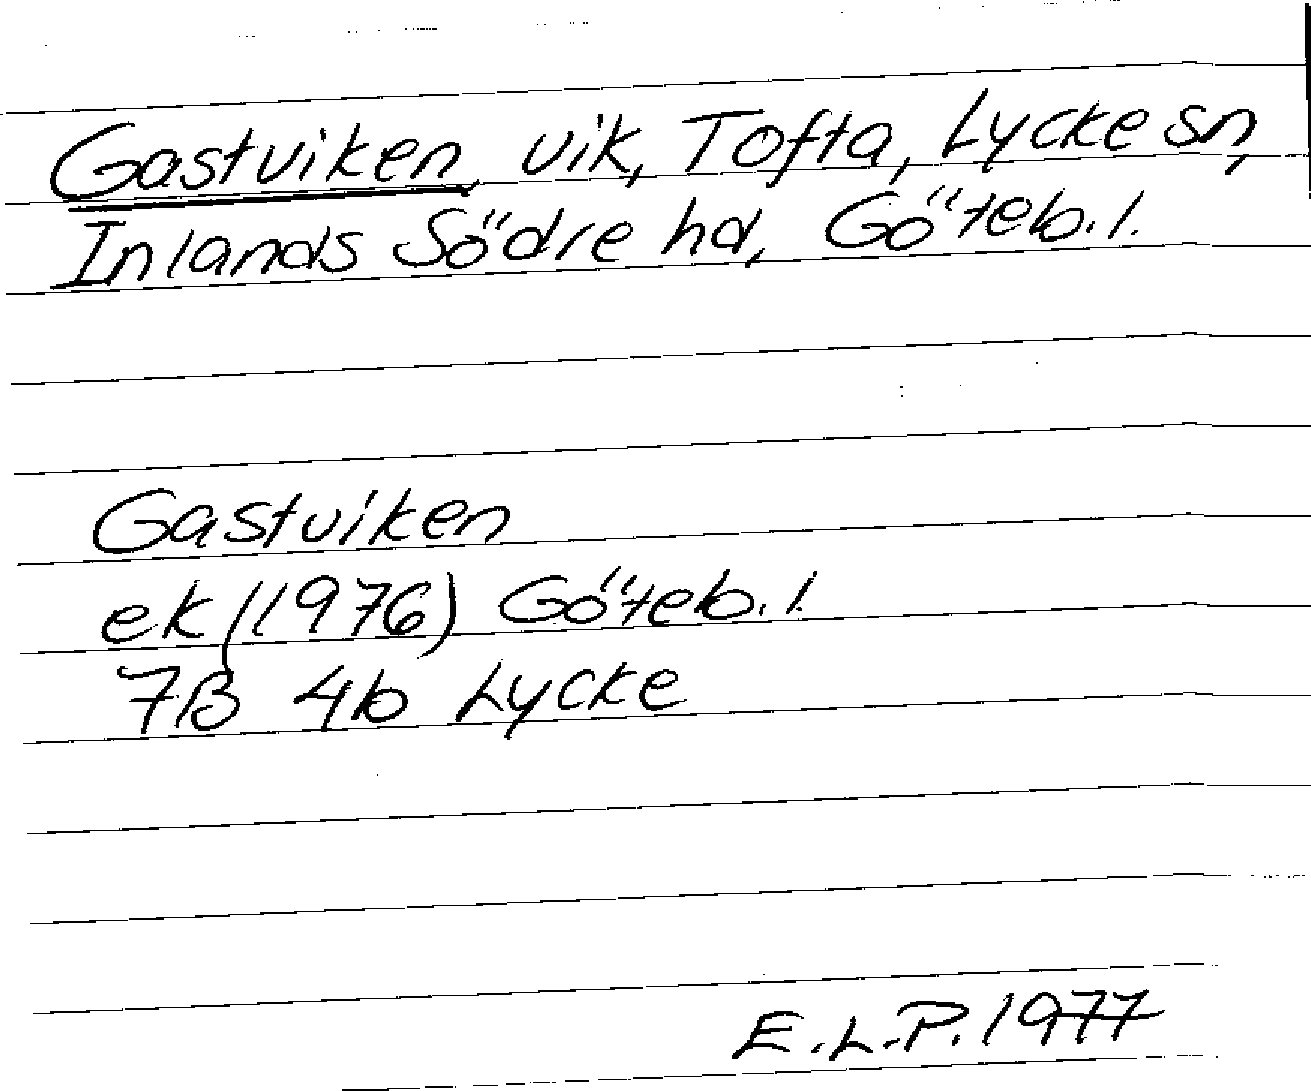 Gastviken, vik, Tofta, Lycke sn,
Inlands Södre hd, Göteb. l.
Gastviken
ek (1976) Göteb. l.
7B 4b Lycke
E.L.P. 1977